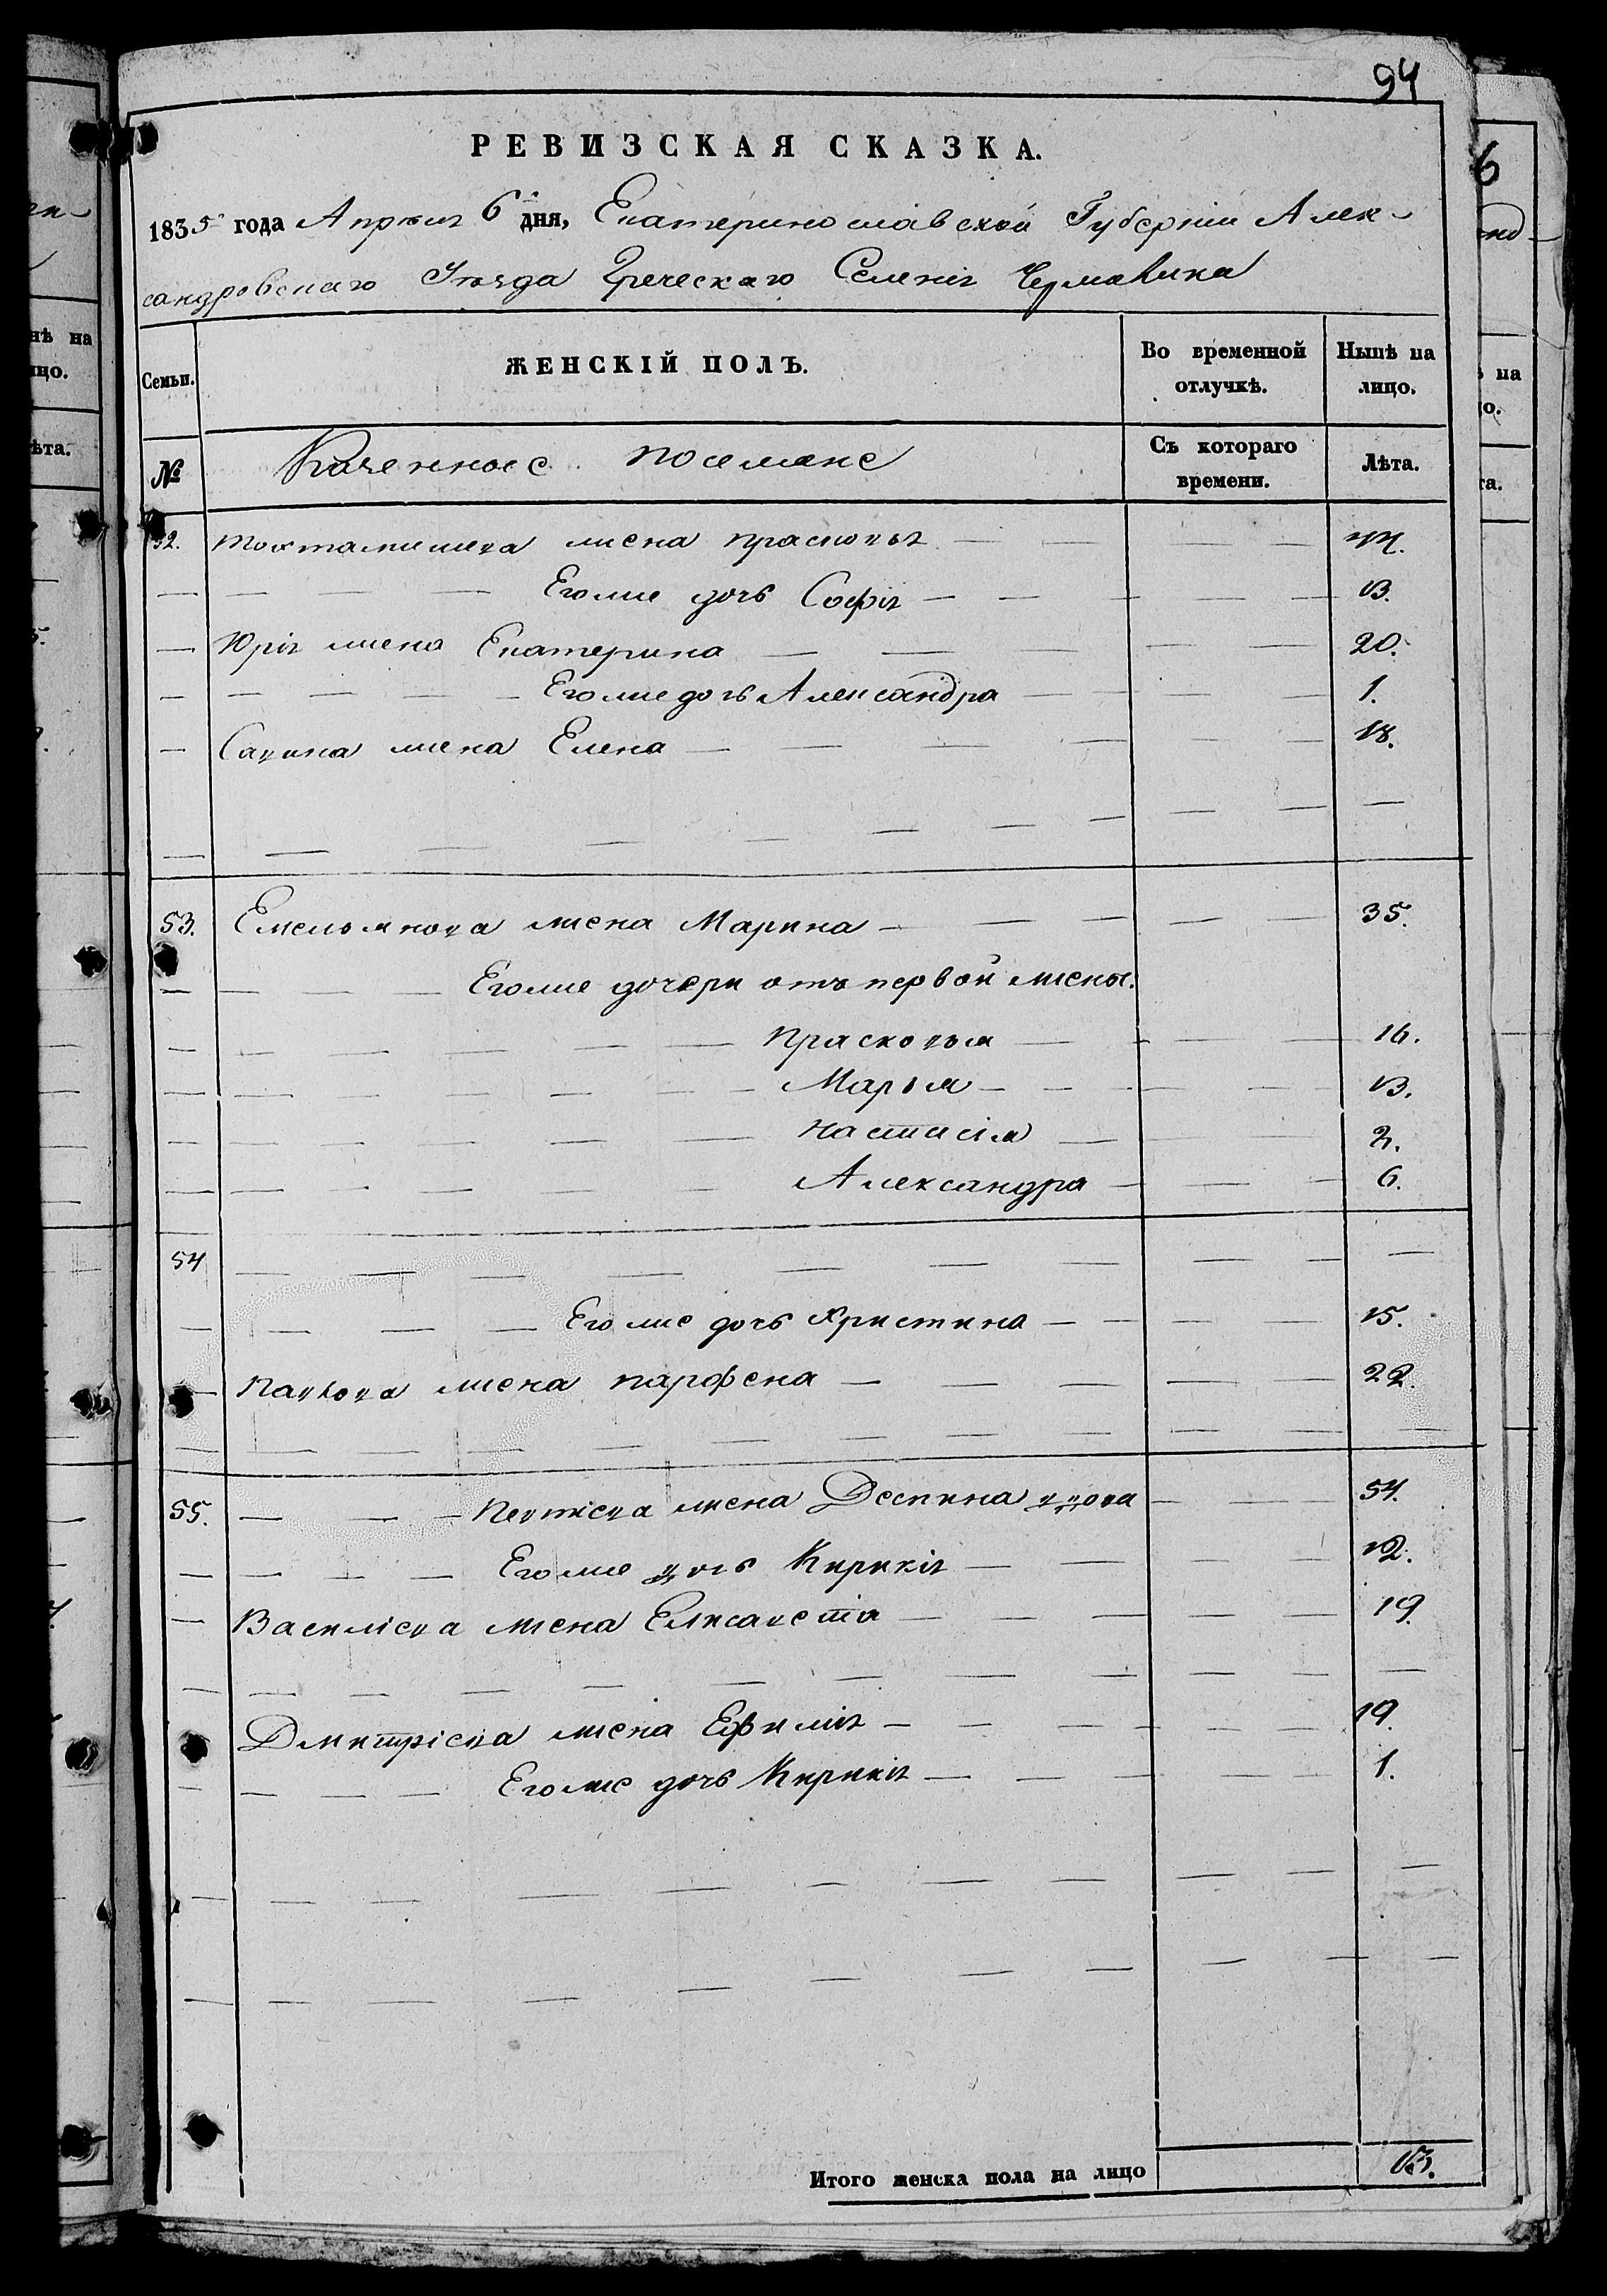 94
РЕВИЗСКАЯ СКАЗКА.
1835 года Апрѣля 6 дня, Екатеринославской Губерніи Алек-
сандровскаго Уѣзда Греческаго Селенія Чермалика
Семьи. ЖЕНСКІЙ ПОЛЪ. Во временной отлучкѣ. Нынѣ на лицо.
№ Казенные поселяне Съ котораго времени. Лѣта.
52. Тохтамишева жена Прасковья 44.
Его же дочь Софія 13.
Юрія жена Екатерина 20.
Его же дочь Александра 1.
Савина жена Елена 18.
53. Емельянова жена Марина 35.
Его же дочери отъ первой жены:
Прасковья 16.
Марья 13.
Настасія 2.
Александра 6.
54
Его же дочь Христина 15.
Павлова жена Парфена 22.
55. жена Деспина вдова 54.
Его же дочь Кирикія 12.
Василіева жена Елисавета 19.
Дмитріева жена Ефимія 19.
Его же дочь Кирикія 1.
Итого женска пола на лицо
нѣ на
цо.
ѣта.
6
на
о.
та.